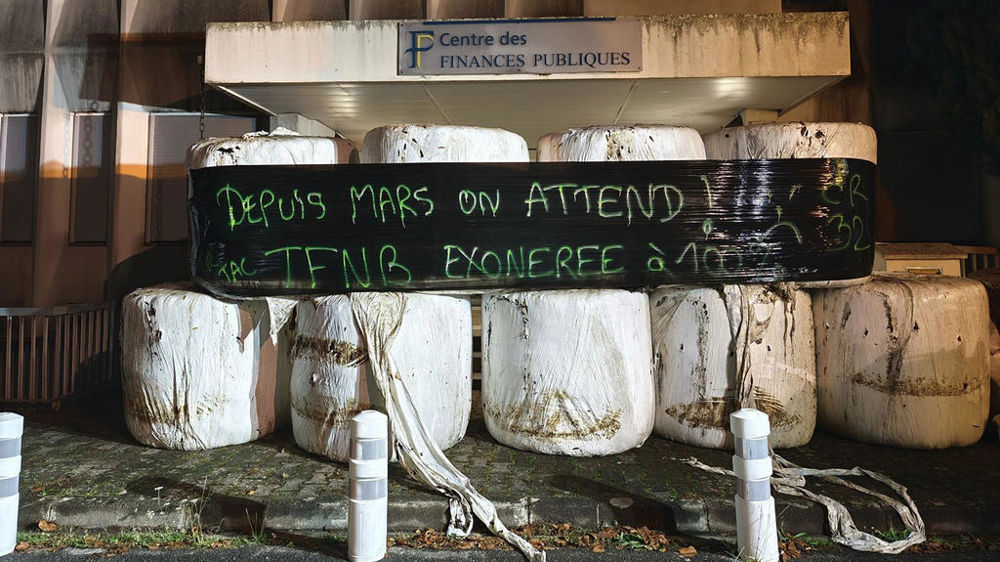 Centre des
FINANCES PUBLIQUES
DEPUIS MARS ON ATTEND !
CR
32
TAC TFNB EXONEREE à 100%